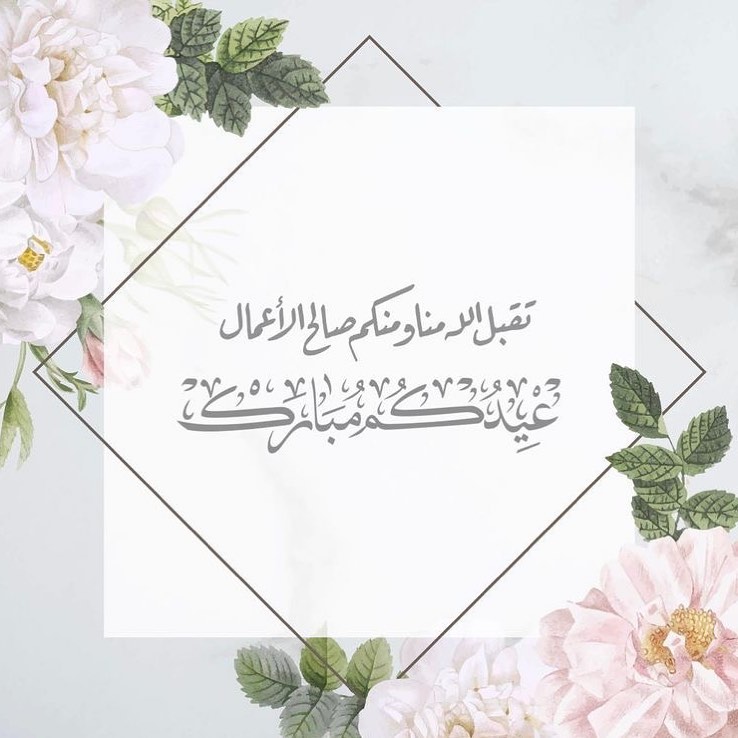 تقبل الله منا ومنكم صالح الأعمال
عِيْدُكُم مُبَارَك